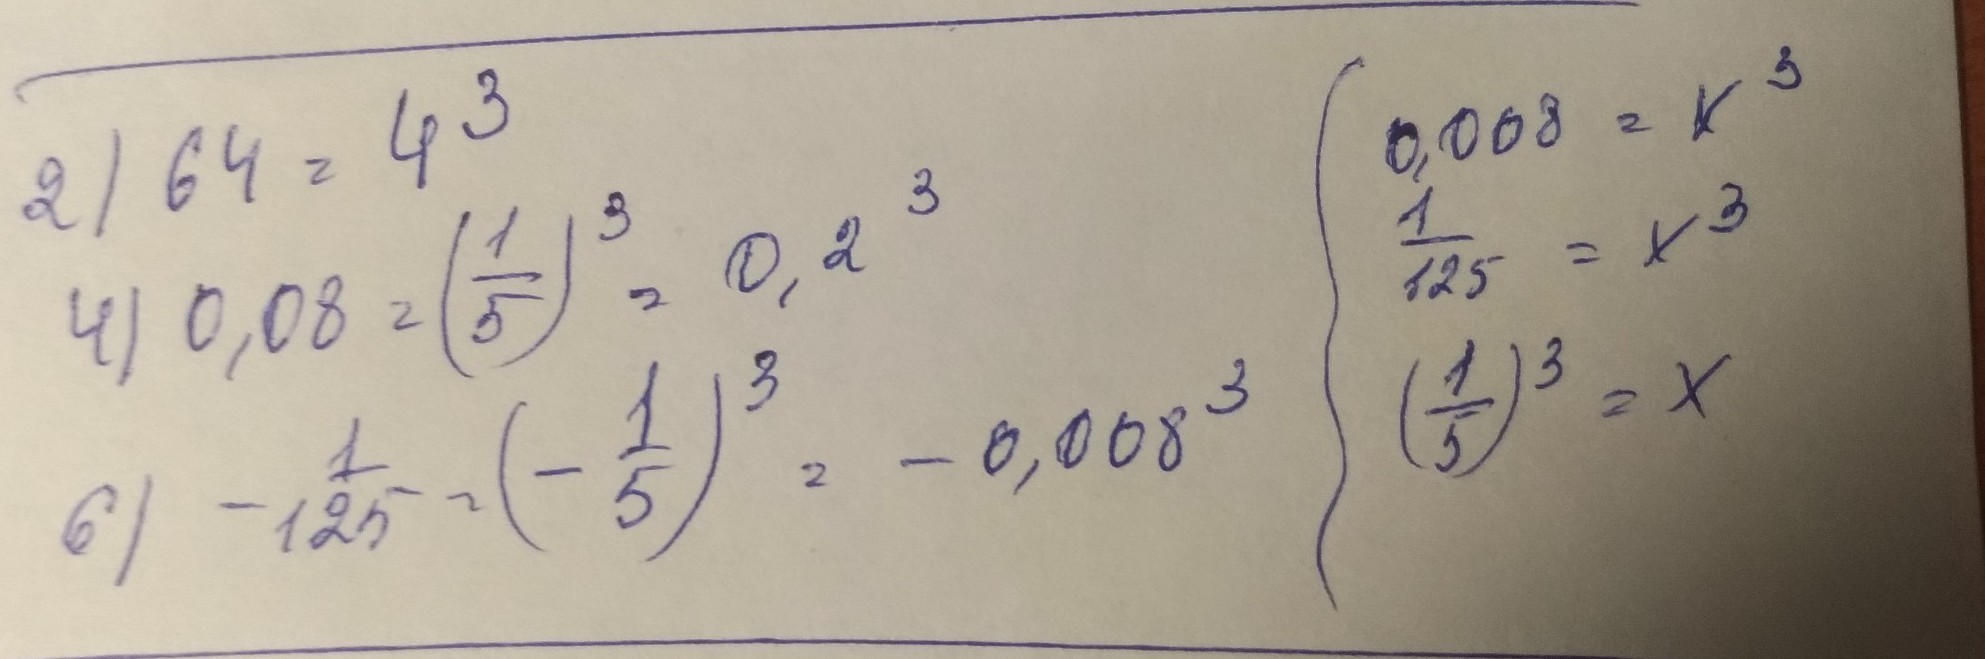 2) 64 = 4³
4) 0,08 = (1/5)³ = 0,2³
6) -1/125 = (-1/5)³ = -0,008³
0,008 = x³
1/125 = x³
(1/5)³ = x